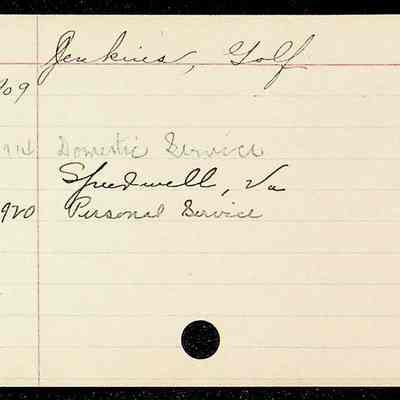 Jenkins, Golf
09
914 Domestic Service
Speedwell, Va
920 Personal Service